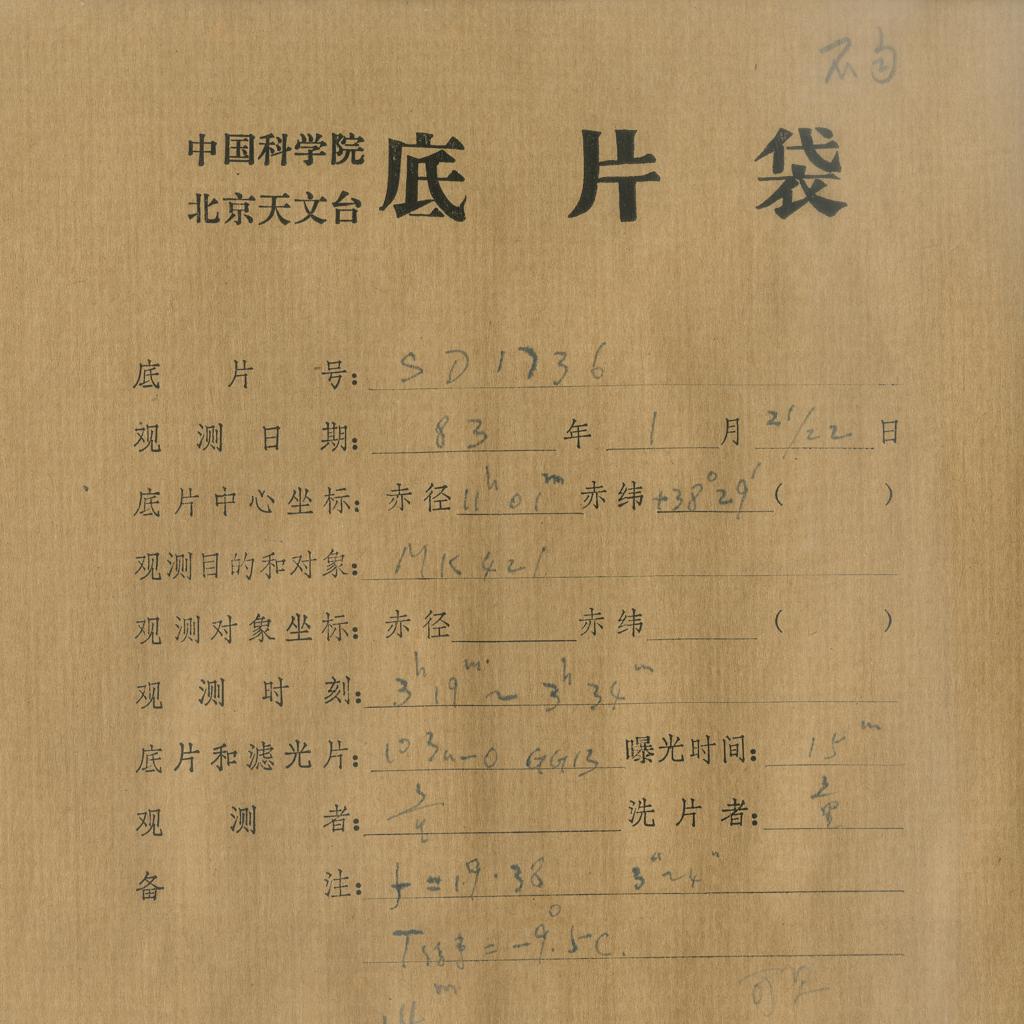 中国科学院
北京天文台
底片袋
底片号: SD1736
观测日期: 83年1月21/22日
底片中心坐标: 赤径11ʰ01ᵐ赤纬+38°29′( )
观测目的和对象: MK421
观测对象坐标: 赤径 赤纬 ( )
观测时刻: 3ʰ19ᵐ~3ʰ34ᵐ
底片和滤光片: 103a-O GG13 曝光时间: 15ᵐ
观测者: 洗片者:
备注: f=19.38 3″~4″
T = -9°.5C.